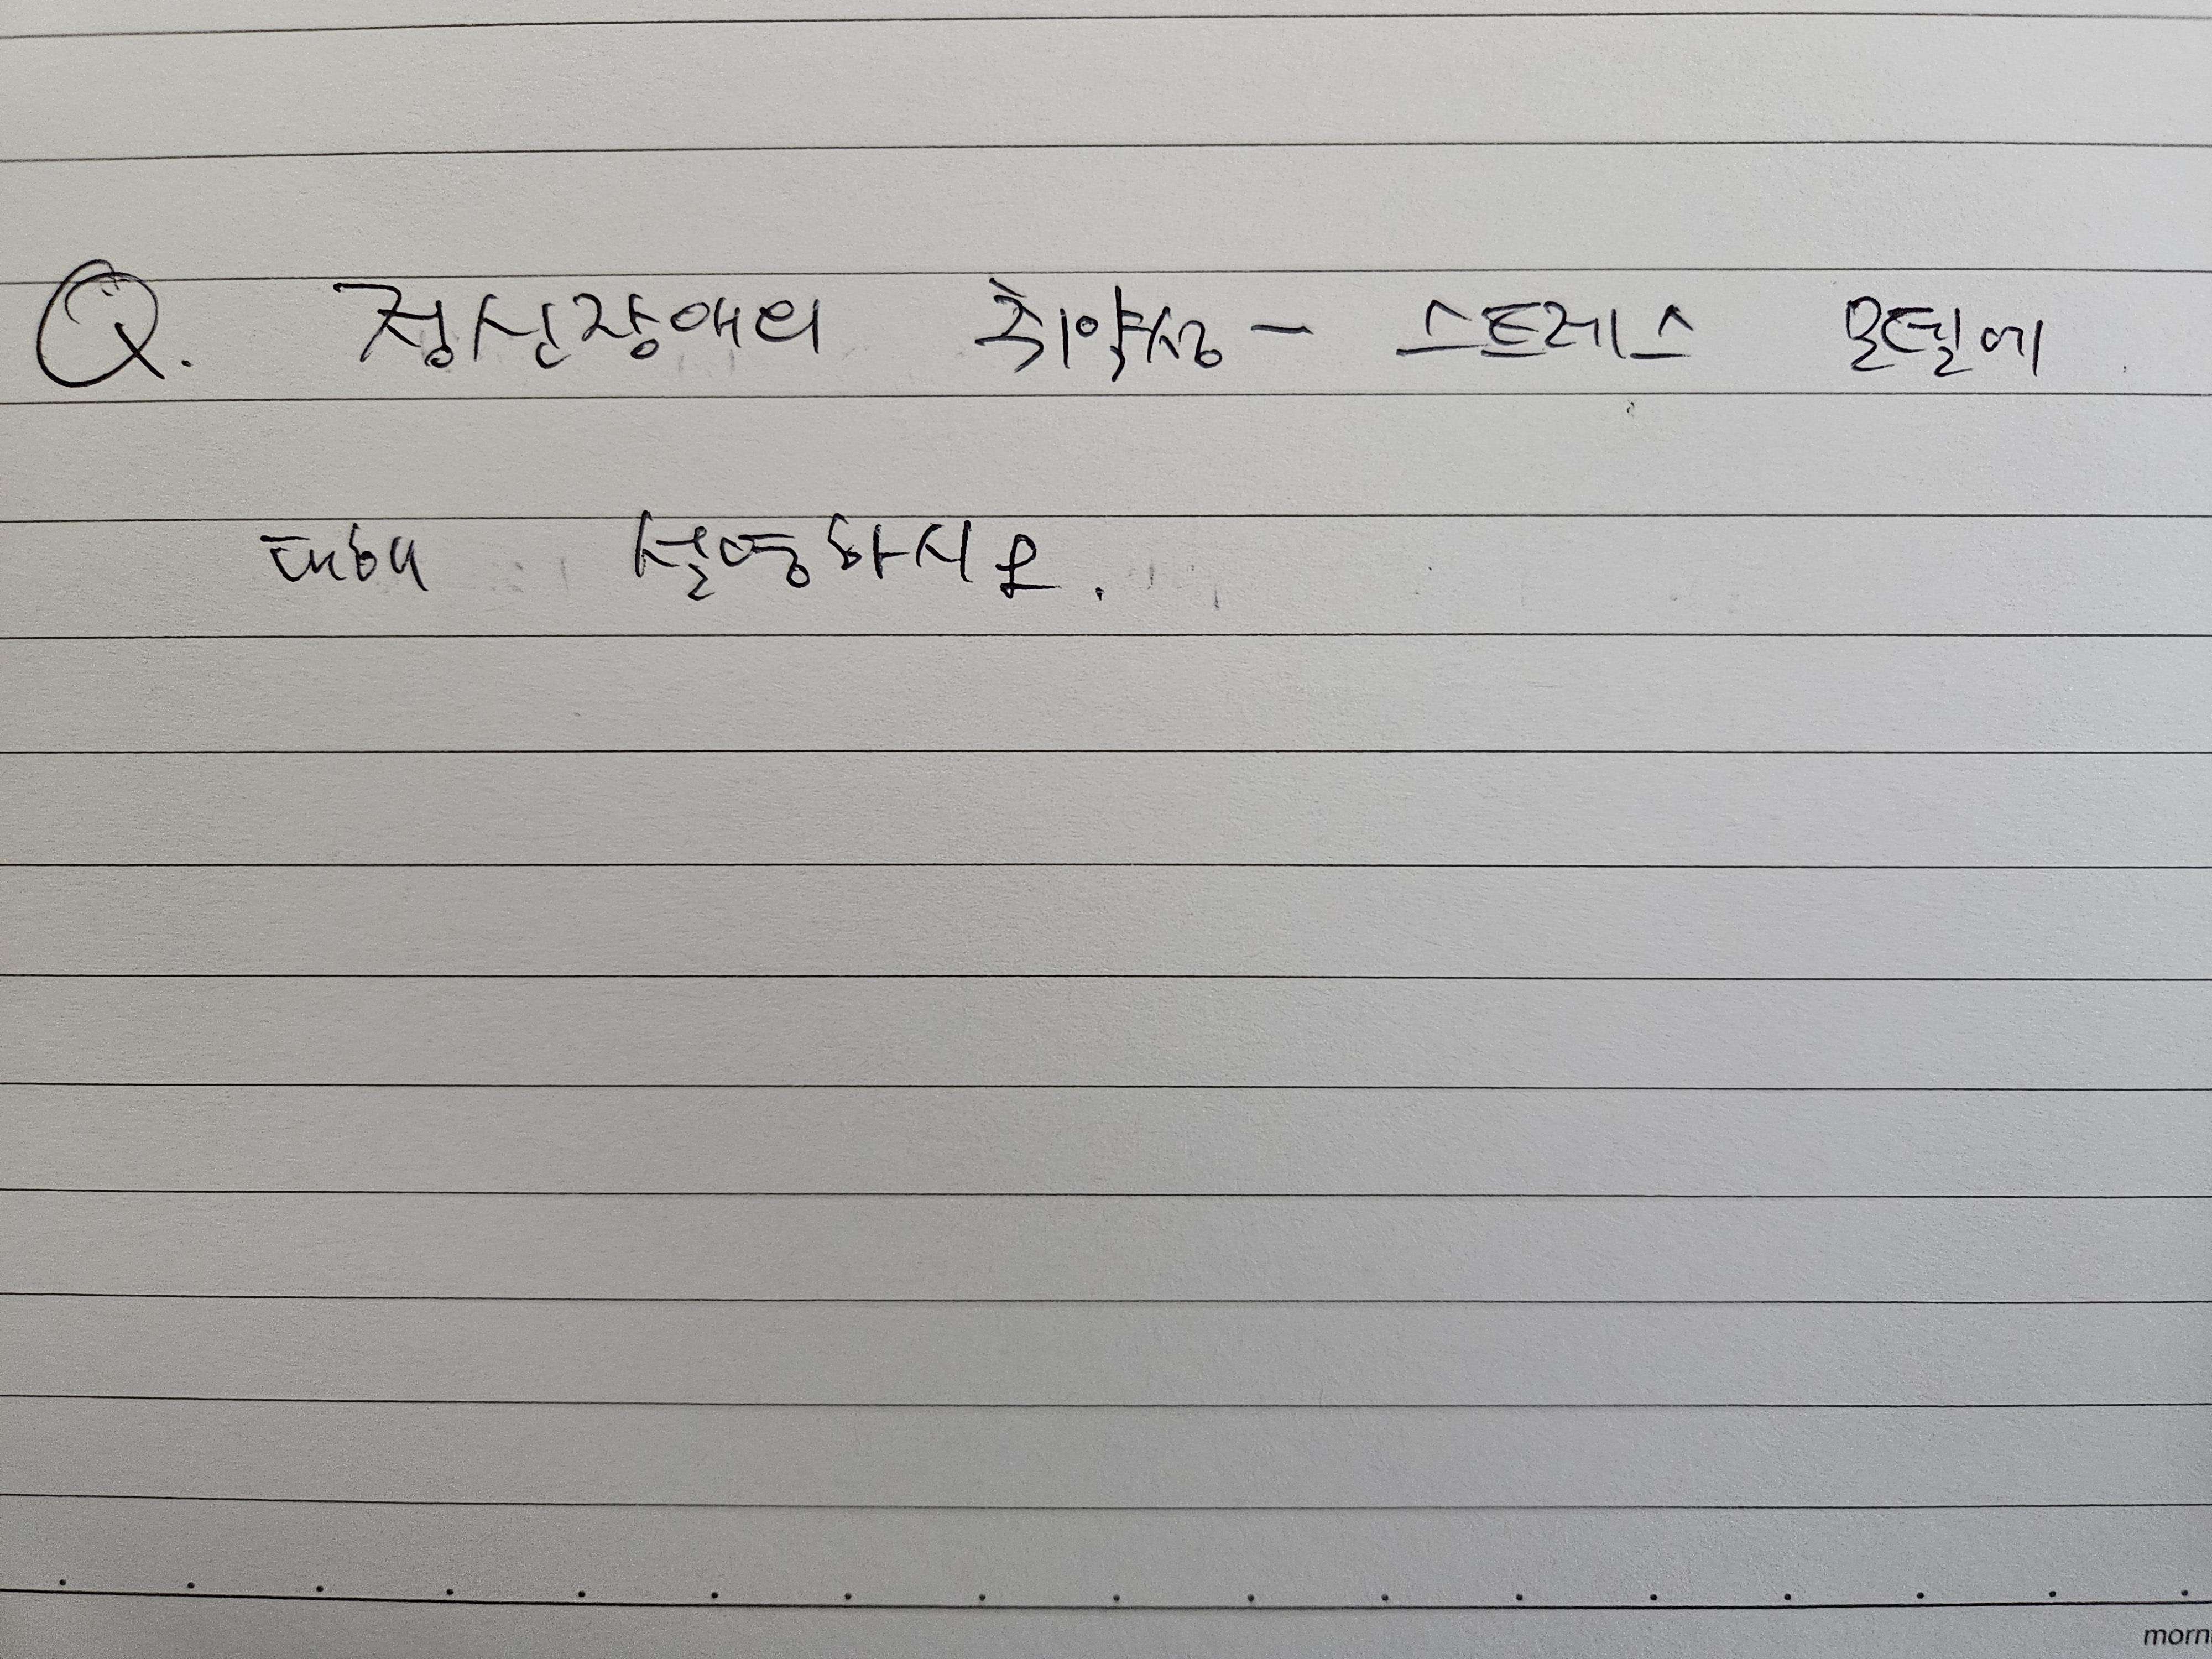 Q. 정신장애의 취약성 - 스트레스 모델에
대해 설명하시오.
morn